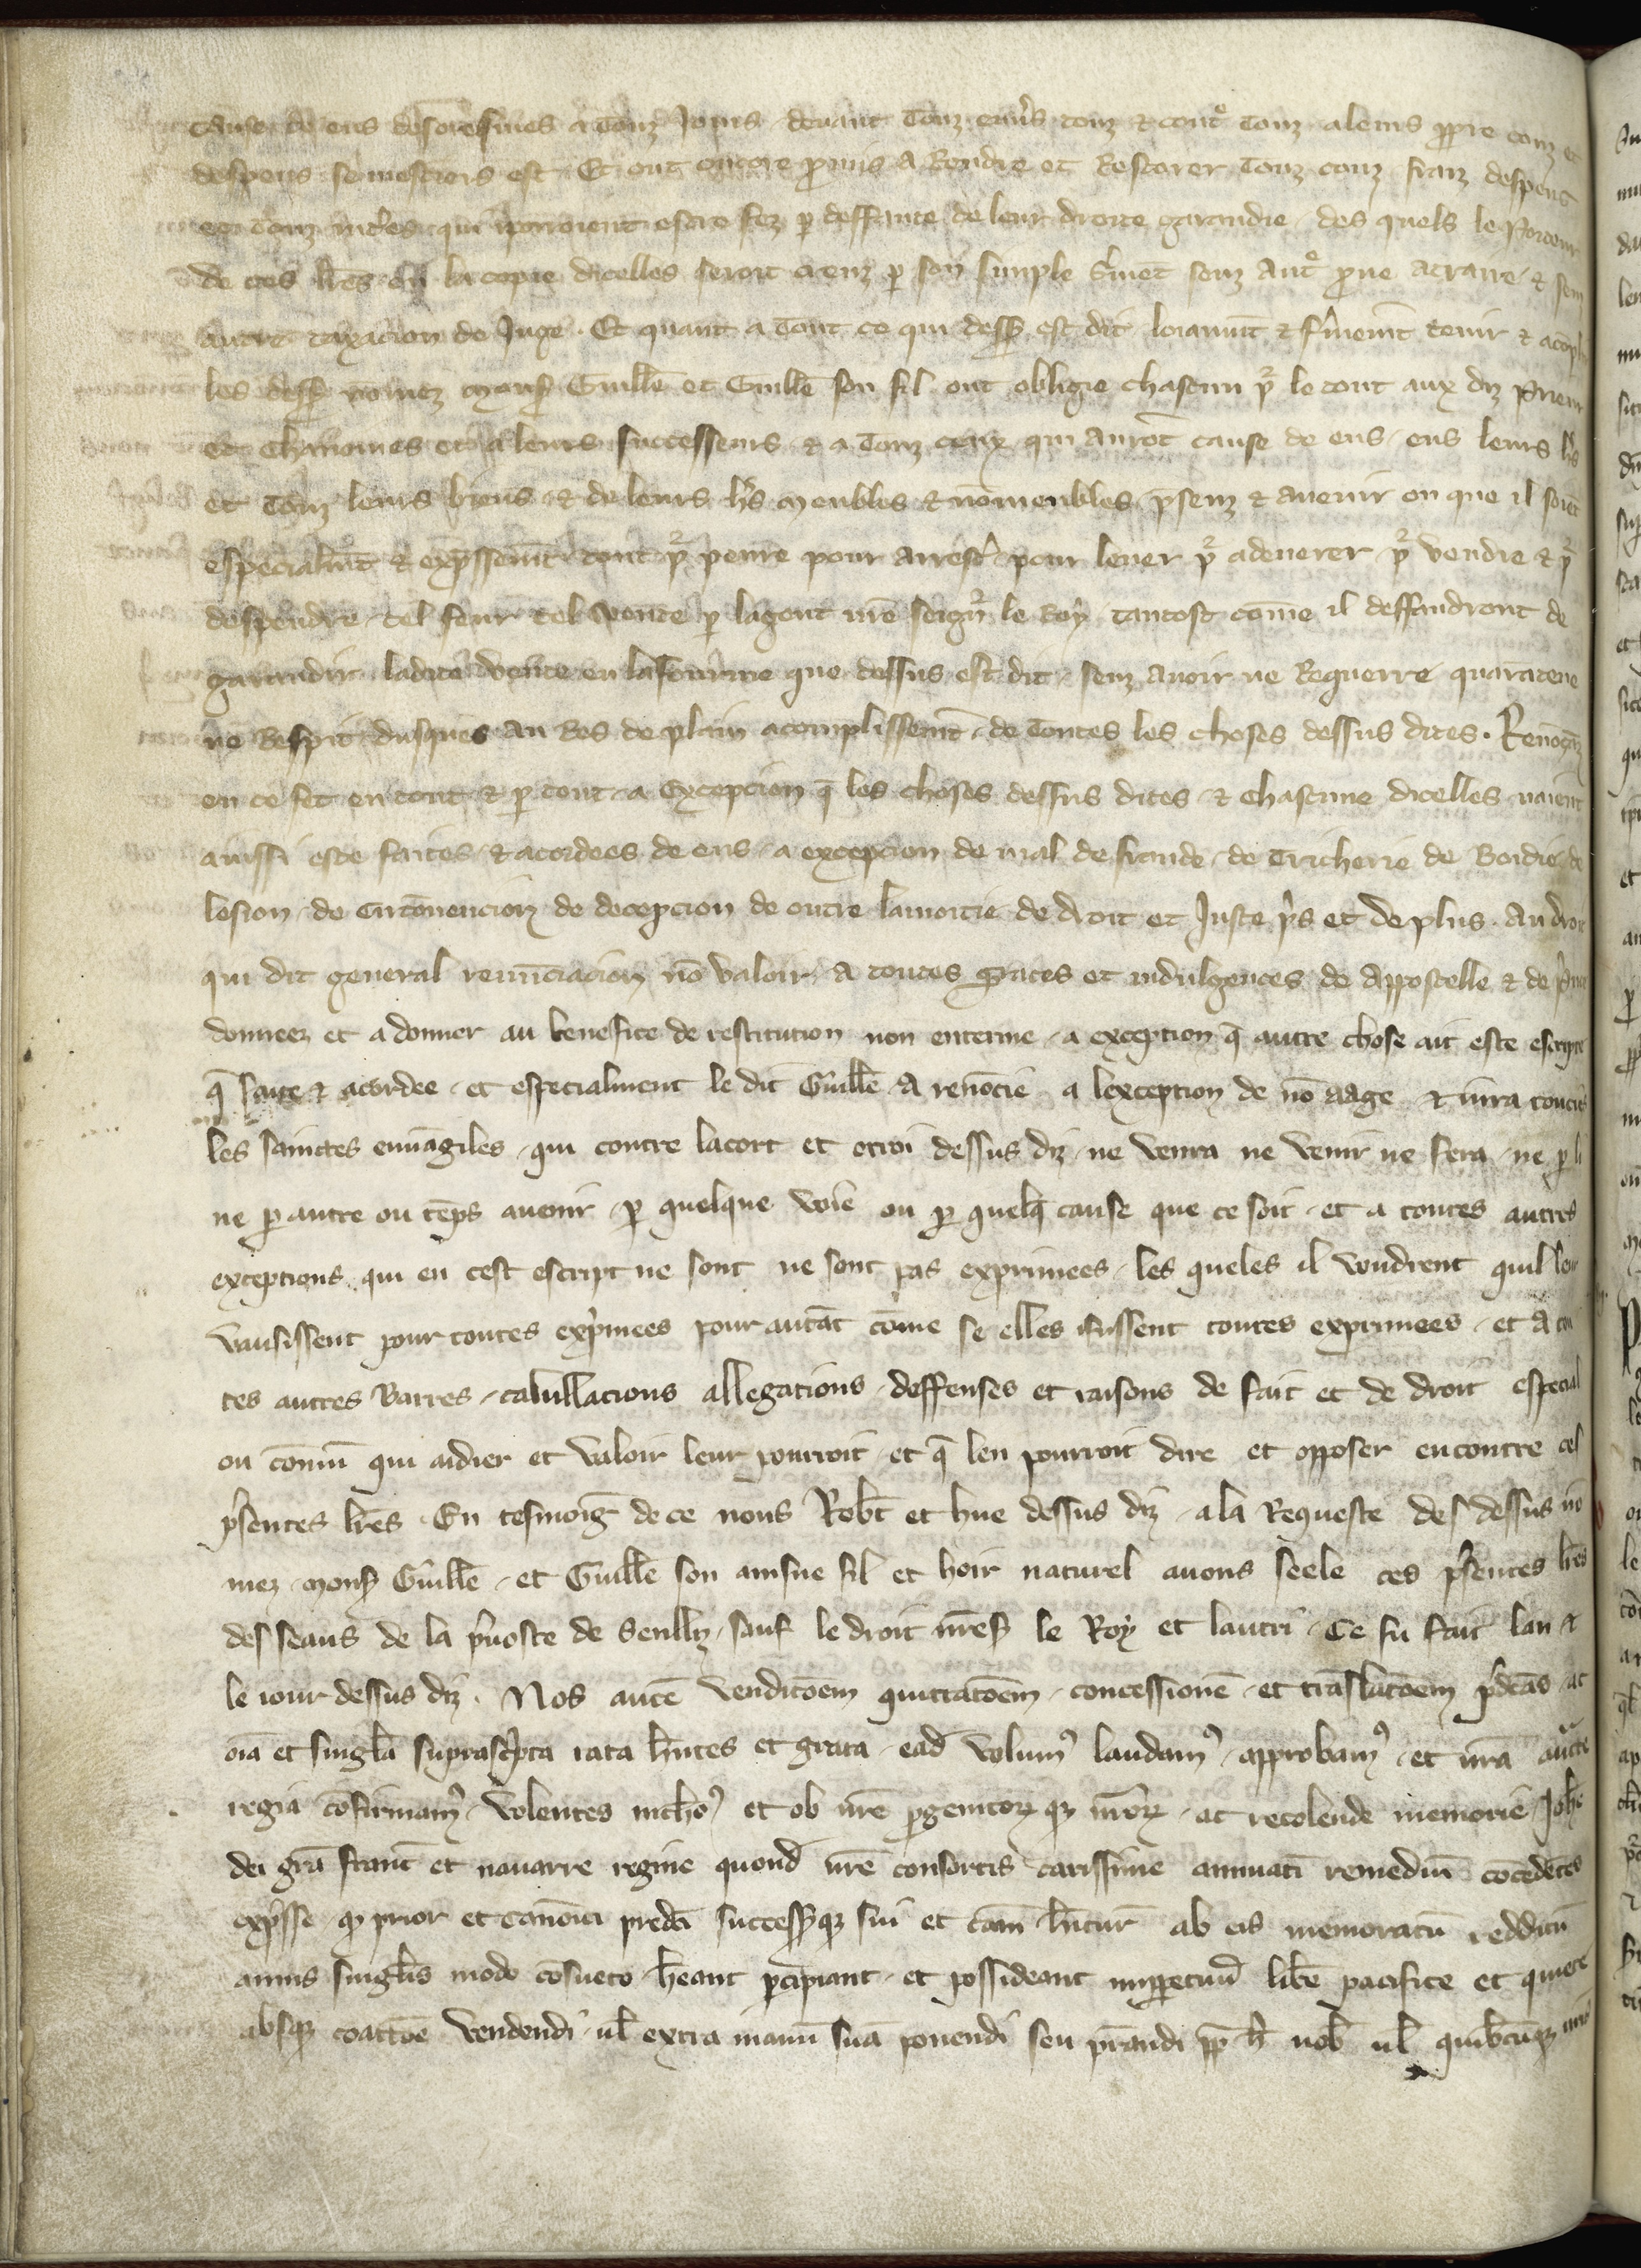 cause de eus desorefmes a touz Jours devant touz env̾s touz & cont͛ touz a leurs ꝓpre couz et
despens se mestiers est. Et ont encore ꝓmis a Rendre et Restorer touz couz fraiz despens
et touz int̾es qui iporroient estre fez ꝑ deffaute de leur droite garandie des quels le Porteur
de ces lr̄es ou la copie dicelles seroit creuz ꝑ son simple S̾met senz aut͛ ꝓue atraire & senz
autre taxacion de Juge. Et quant a tout ce qui dess̾ est dit loiaumt̄ & f̾memt̄ tenir & acōplir
les dess̾ nomez Mons̾ Guill̄e et Guill̄e son fil ont obligie chascun pͬ le tout aux diz Prieur
et Chanoines et a leurs successeurs & a touz ceux qui auront cause de eus, eus leurs h̾s
et touz leurs biens & de leurs h̾s meubles & nōmeubles p̄senz & auenir ou que il soiēt
especialmt̄ & exp̄ssemt̄ tout pͬ penre pour arrest̾ pour leuer pͬ adenerer pͬ vendre & pͬ
despendre tel feur tel vente ꝑ lagent nr̄e seignͬ le Roy tantost cōme il deffaudront de
garandir ladite vente en la fourme que dessus est dit senz auoir ne Requerre quarātene
ne Respit dusques au Res de plain acomplissemt̄ de toutes les choses dessus dites. Renōcāz
en ce fet en tout & ꝑ tout a excepcion q̄ les choses dessus dites & chascune dicelles naient
ainssi este faites & acordees de eus a excepcion de mal de fraude de tricherie de Boidie de
lesion de circōuencion de decepcion de outre lamoitie de droit et Juste p̾s et de plus. Au droit
qui dit general renūciacion nō valoir a toutes graces et indulgences de appostelle & de p̾nce
donnees et a donner au benefice de restitution non enterine a exception q̄ autre chose ait este escripte
q̄ faite & acordee et especialment le dit Guill̄e a renōcie a lexception de nō aage & iura touchēs
les sainctes euuāgiles qui contre lacort et otroi dessus diz ne venra ne venir ne fera ne ꝑ li
ne ꝑ autre ou tēps auenir ꝑ quelque voie ou ꝑ quelq̄ cause que ce soit et a toutes autres
exceptions qui en cest escript ne sont ne sont pas exprimees les queles il voudrent quil leur
vausissent pour toutes exp̾mees pour autāt cōme se elles fussent toutes exprimees et a tou
tes autres Barres cabull̄acions allegations deffenses et raisons de fait et de droit especial
ou cōmū qui aidier et valoir leur pourroit et q̄ len pourroit dire et opposer encontre ces
p̾sentes lr̄es En tesmoiḡ de ce nous Rob̄t et hue dessus diz a la Requeste des dessus nō
mez mons̾ Guill̄e et Guill̄e son ainsne fil et hoir naturel auons seele ces p̾sentes lr̄es
des seaus de la p̾uoste de Senlliz sauf le droit nr̄es̾ le Roy et lautri Ce fu fait lan &
le iour dessus diz. Nos autē venditōem quittatōem concessionē et trāslatōem p̾dc̄as ac
oīa et singl̄a suprasc̾pta rata h̄ntes et grata ead̾ volumꝰ laudamꝰ approbamꝰ et nr̄a auctē
regia cōfirmamꝰ volentes nichōꝰ et ob nr̄e ꝓgenitoꝝ qꝫ nr̄oꝝ ac recolende memorie Joh̄e
dei grā franc̄ et nauarre regine quond̾ nr̄e consortis carissime animaꝝ remediū cōcedētes
exp̾sse ꝙ prior et canōici predc̄i success̾qꝫ sui et cām h̄ntur̄ ab eis memoratū redditū
annis singl̄is modo cōsueto h̄eant ꝑcipiant et possideant imꝑpetuū lib̄e pacifice et quiete
absqꝫ coattōe vendendi ul̄ extra manū suā ponendi seu p̄randi ꝓp̄ h̾ nob̄ ul̄ quibꝰcūqꝫ